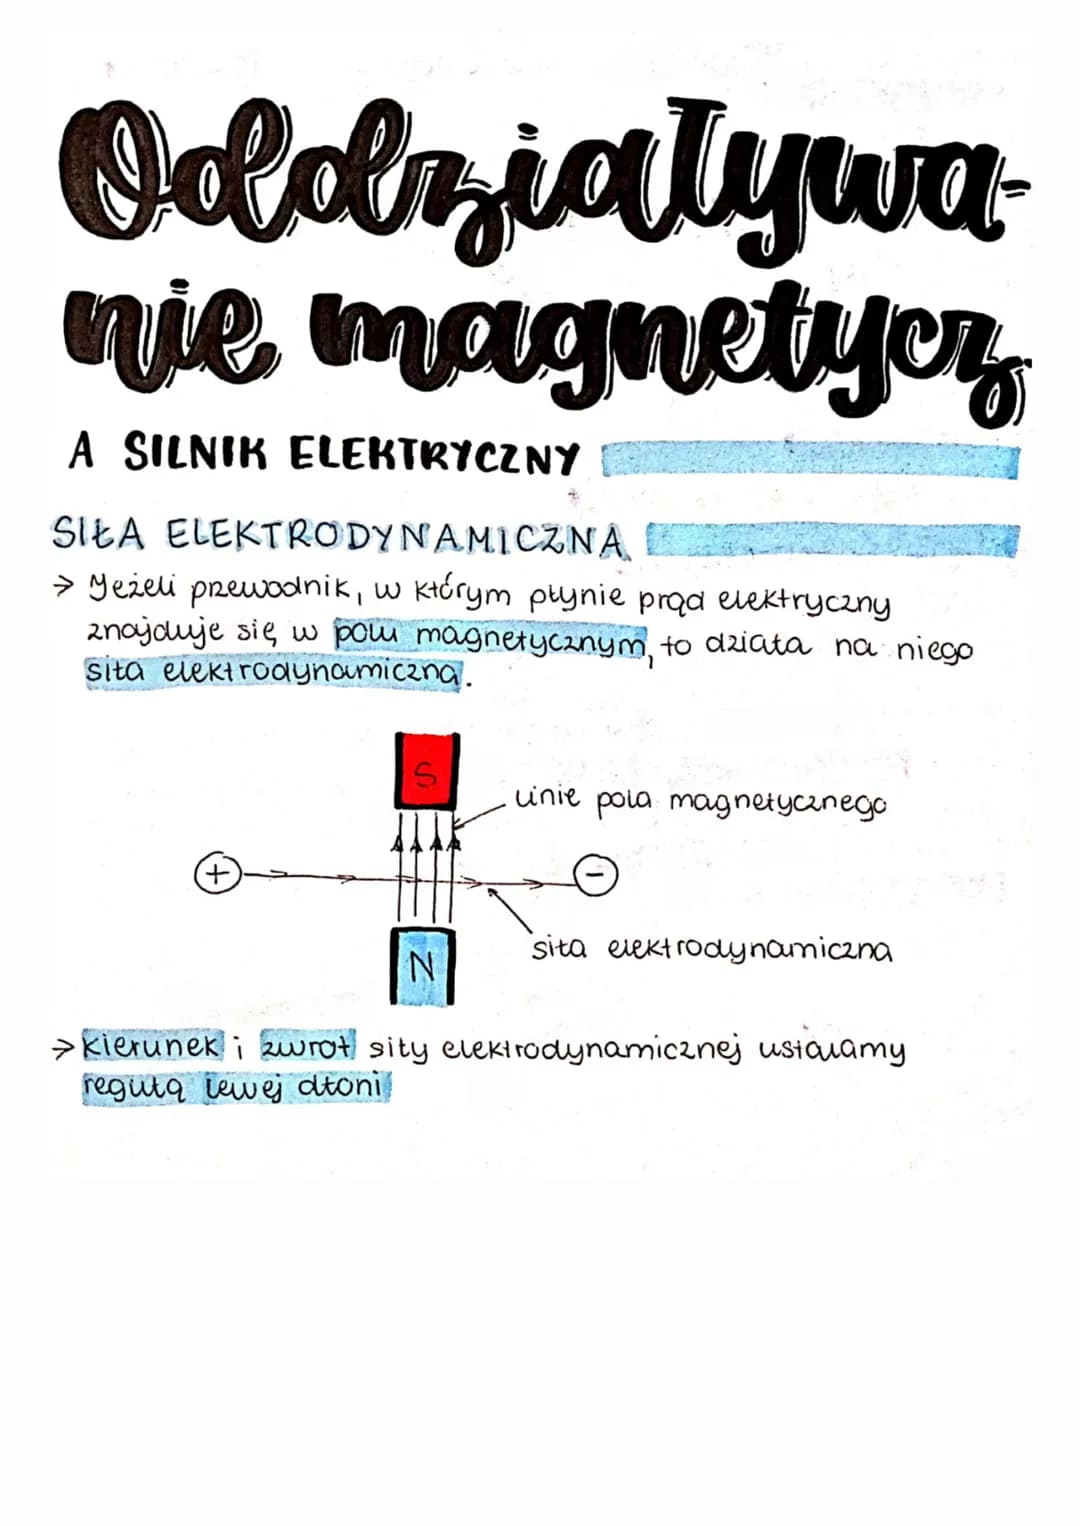 Oddziaływa-
nie magnetycz.
A SILNIK ELEKTRYCZNY
SIŁA ELEKTRODYNAMICZNA
→ Jeżeli przewodnik, w którym płynie prąd elektryczny
znajduje się w polu magnetycznym, to działa na niego
siła elektrodynamiczna.
S
linie pola magnetycznego
+
-
siła elektrodynamiczna
N
→ kierunek i zwrot siły elektrodynamicznej ustalamy
regułą lewej dłoni